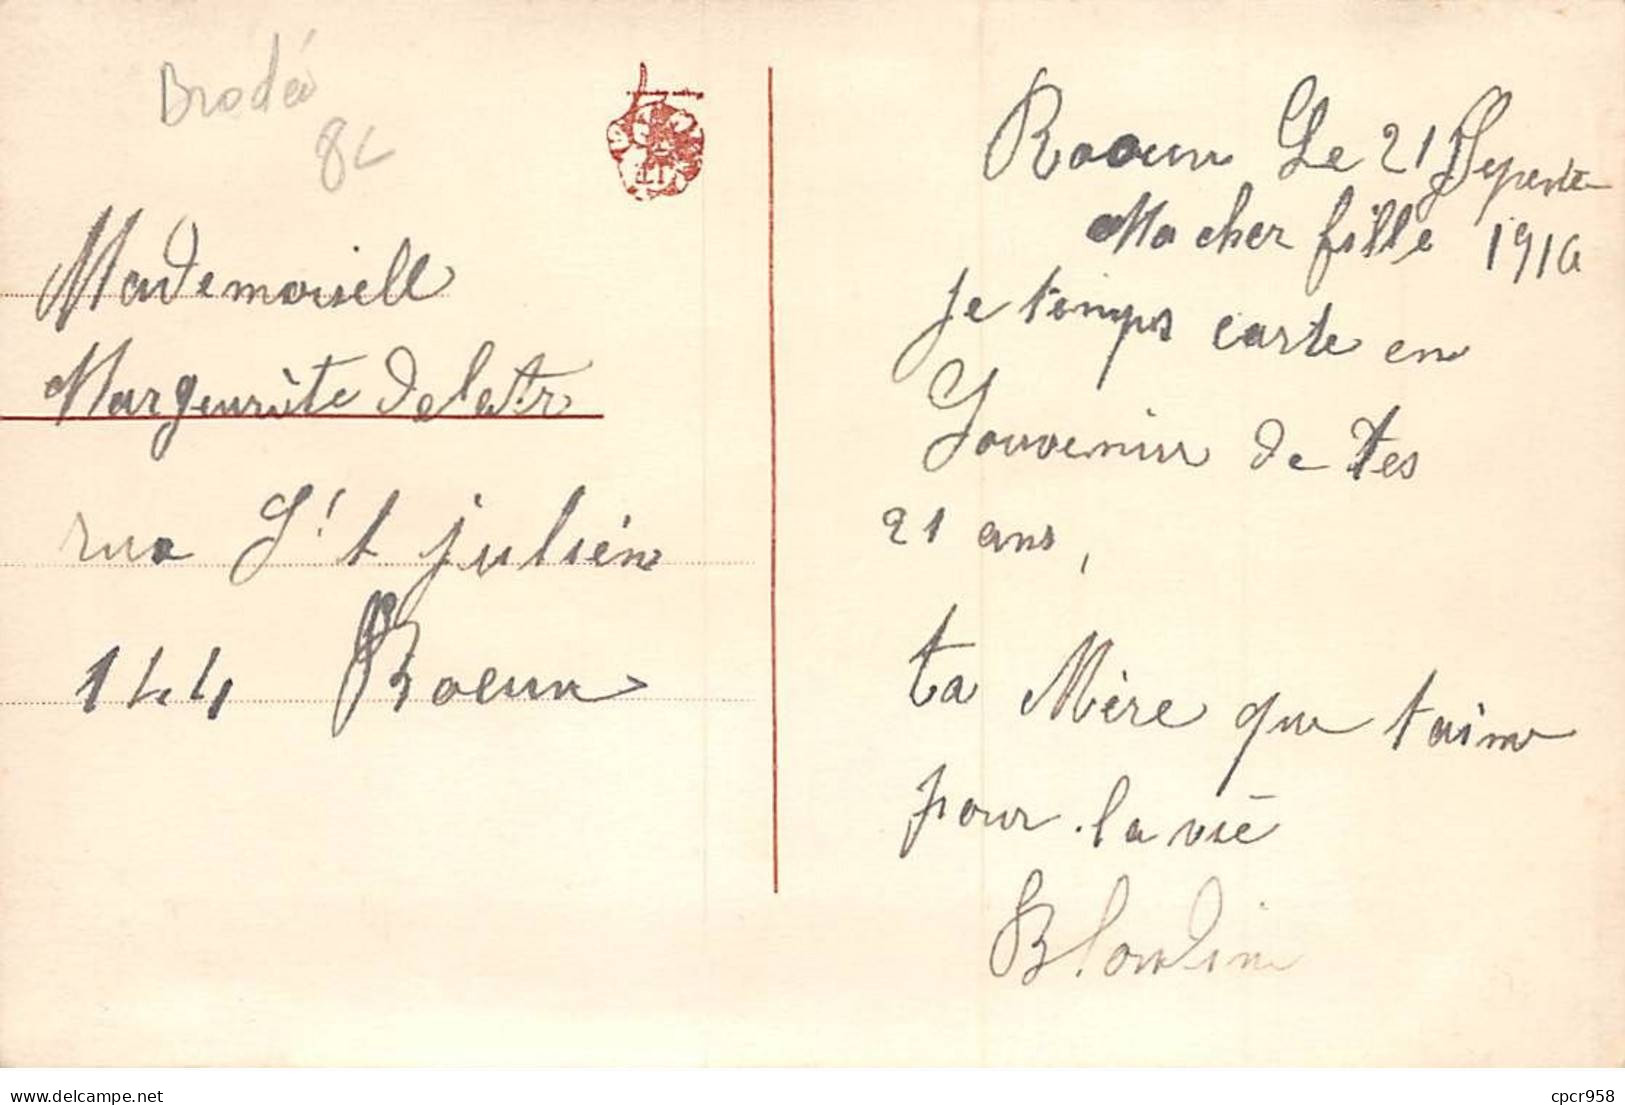 Brodée
8L
Mademoisell
Marguerite Delatr
rue S't julién
144 Roeun
Rooeun Le 21 Septente
Ma cher fille 1916
je temps carte en
Souvenir de tes
21 ans,
ta Mère que t'aime
pour la vie
Blondin
cpcr958